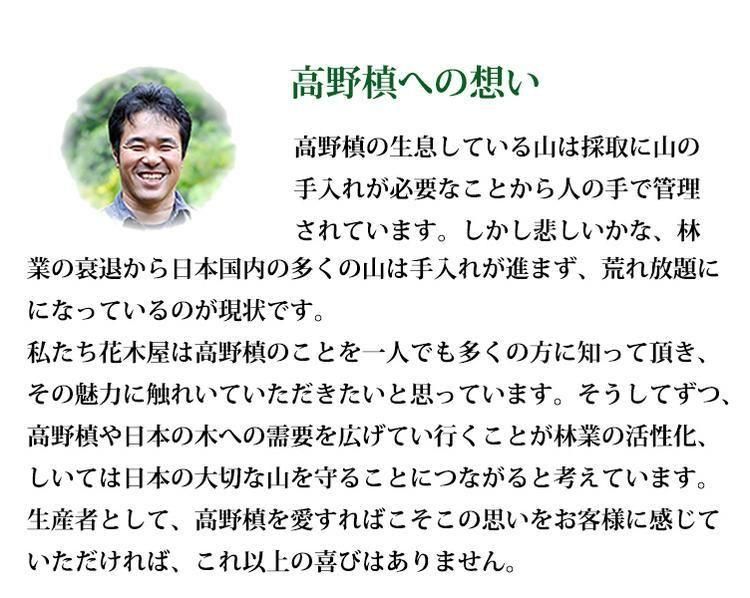 高野槙への想い
高野槙の生息している山は採取に山の
手入れが必要なことから人の手で管理
されています。しかし悲しいかな、林
業の衰退から日本国内の多くの山は手入れが進まず、荒れ放題に
になっているのが現状です。
私たち花木屋は高野槙のことを一人でも多くの方に知って頂き、
その魅力に触れいていただきたいと思っています。そうしてずつ、
高野槙や日本の木への需要を広げてい行くことが林業の活性化、
しいては日本の大切な山を守ることにつながると考えています。
生産者として、高野槙を愛すればこそこの思いをお客様に感じて
いただければ、これ以上の喜びはありません。